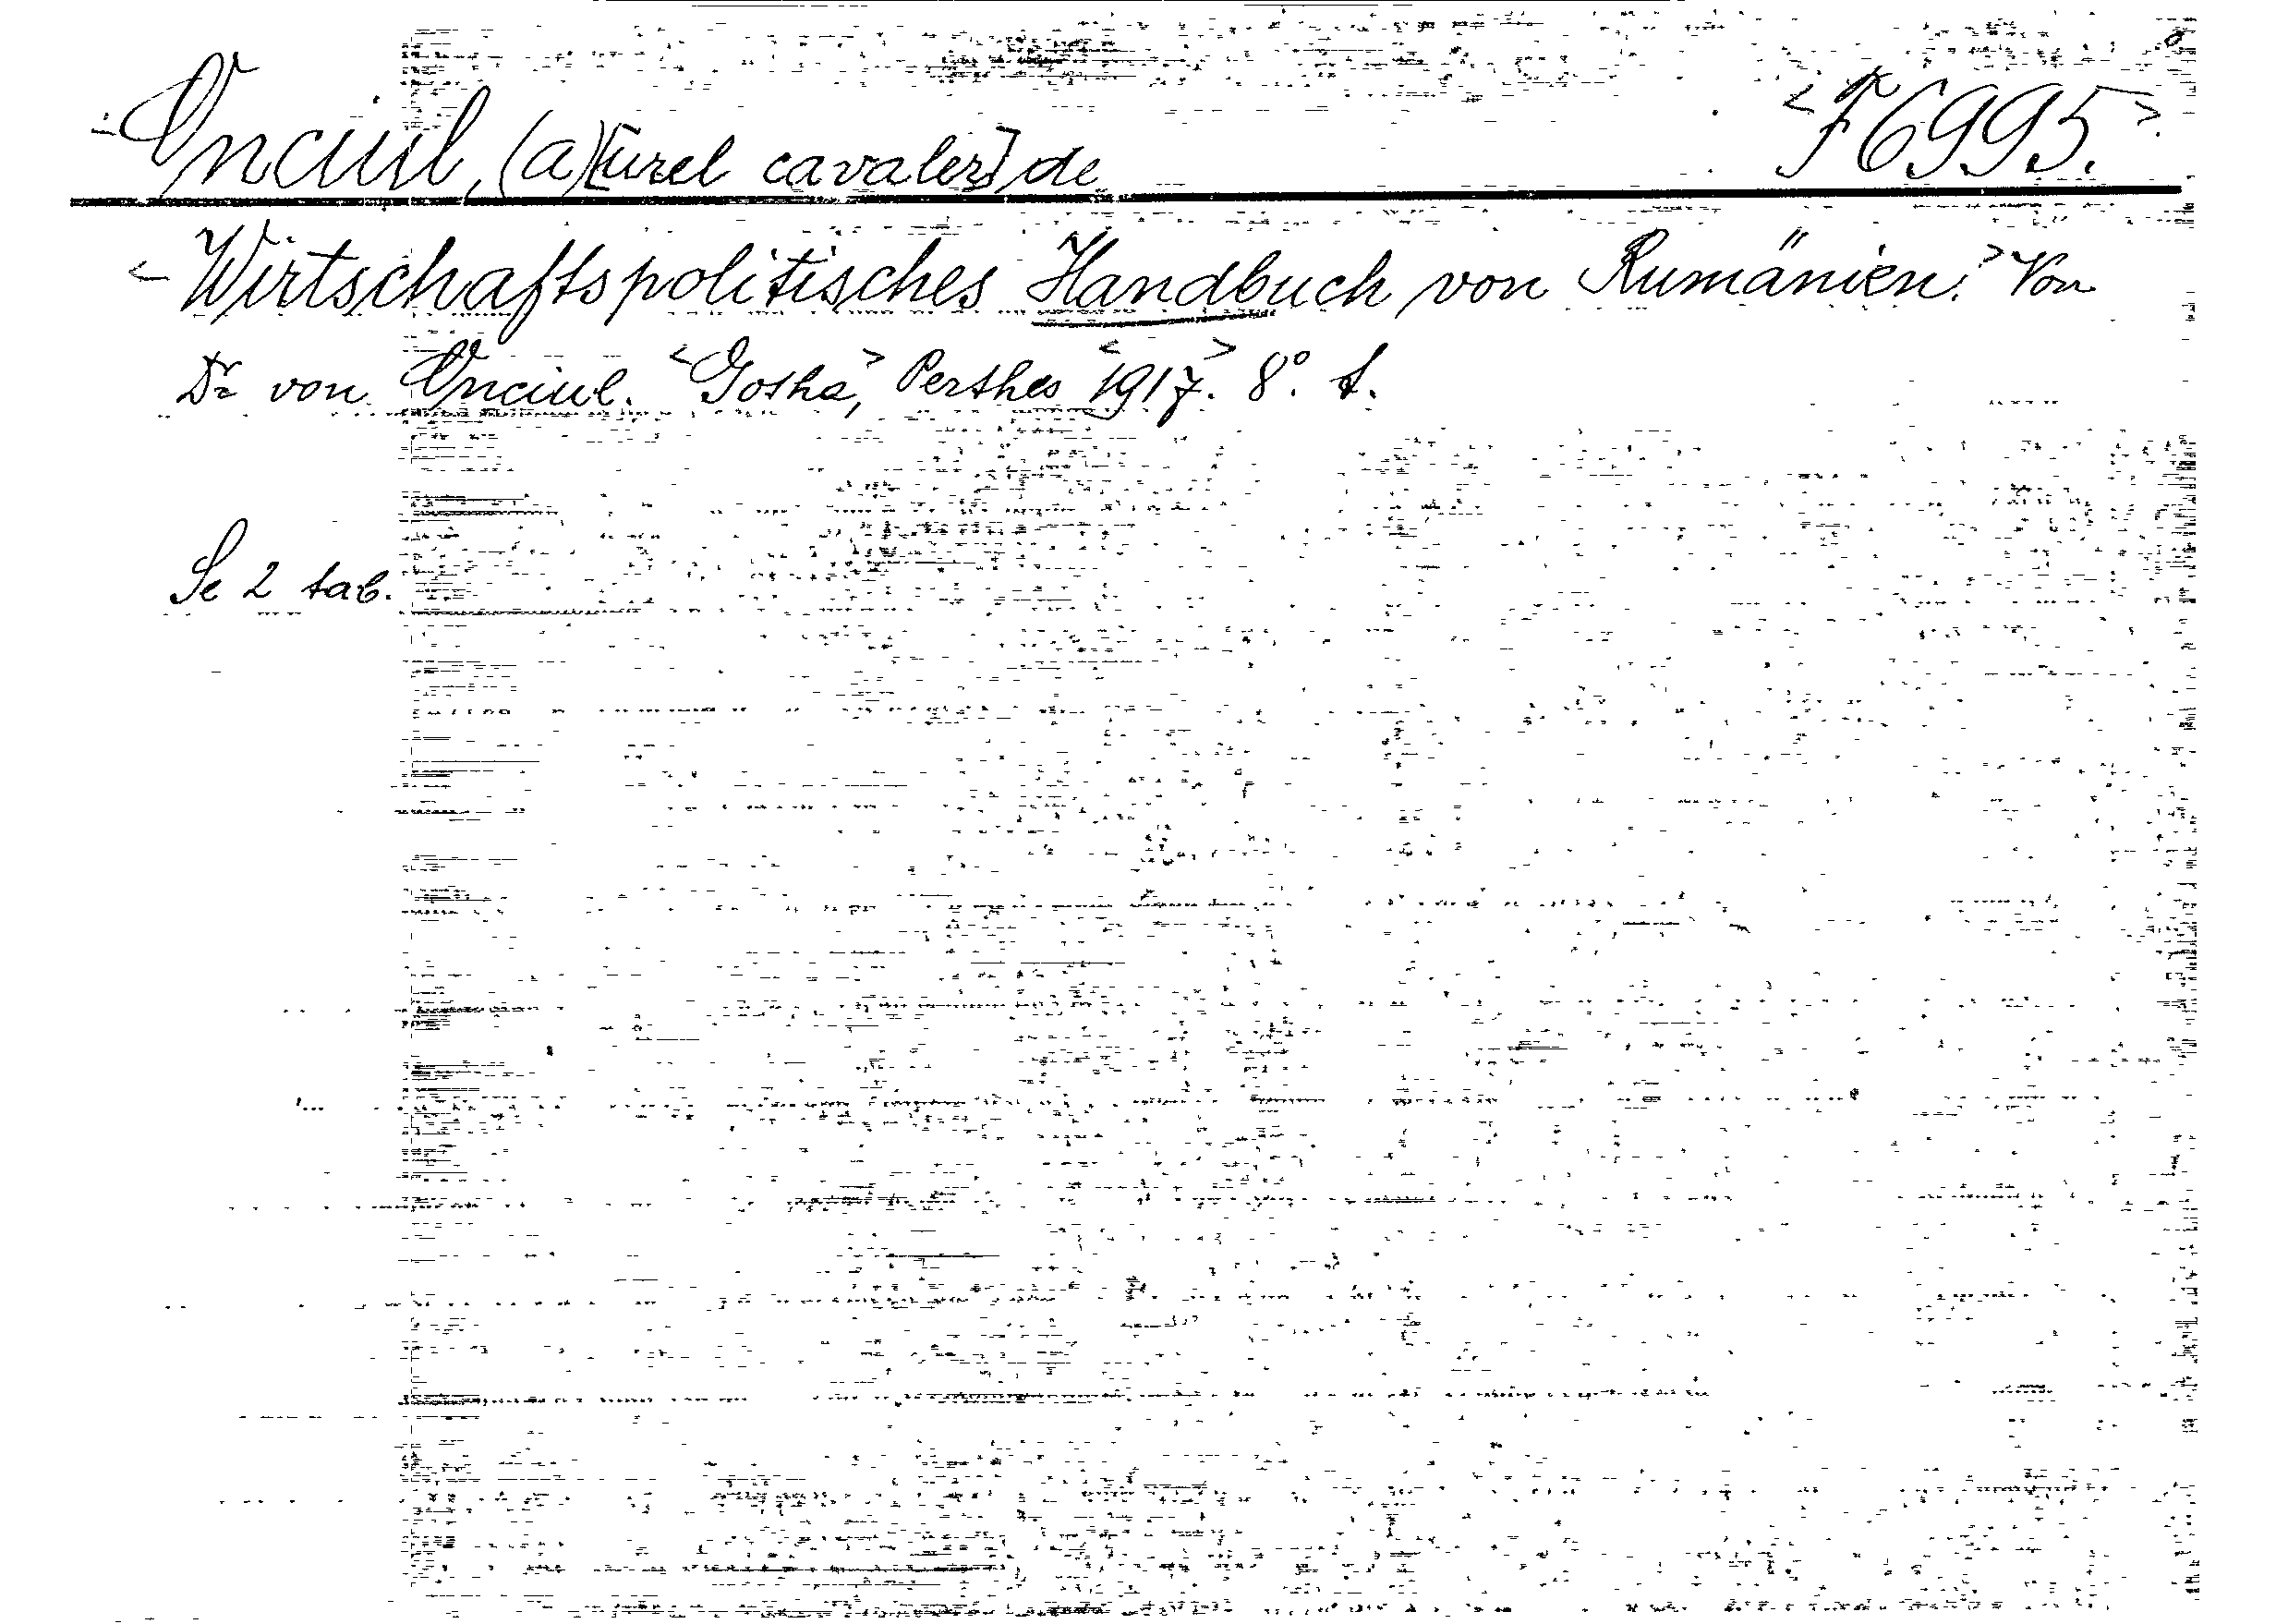 Onciul, (a)[urel cavaler] de <F6995.>
<Wirtschaftspolitisches Handbuch von Rumänien.> Von
Dr von Onciul. <Gotha>, Perthes <1917>. 8°. t.
Se 2 tab.